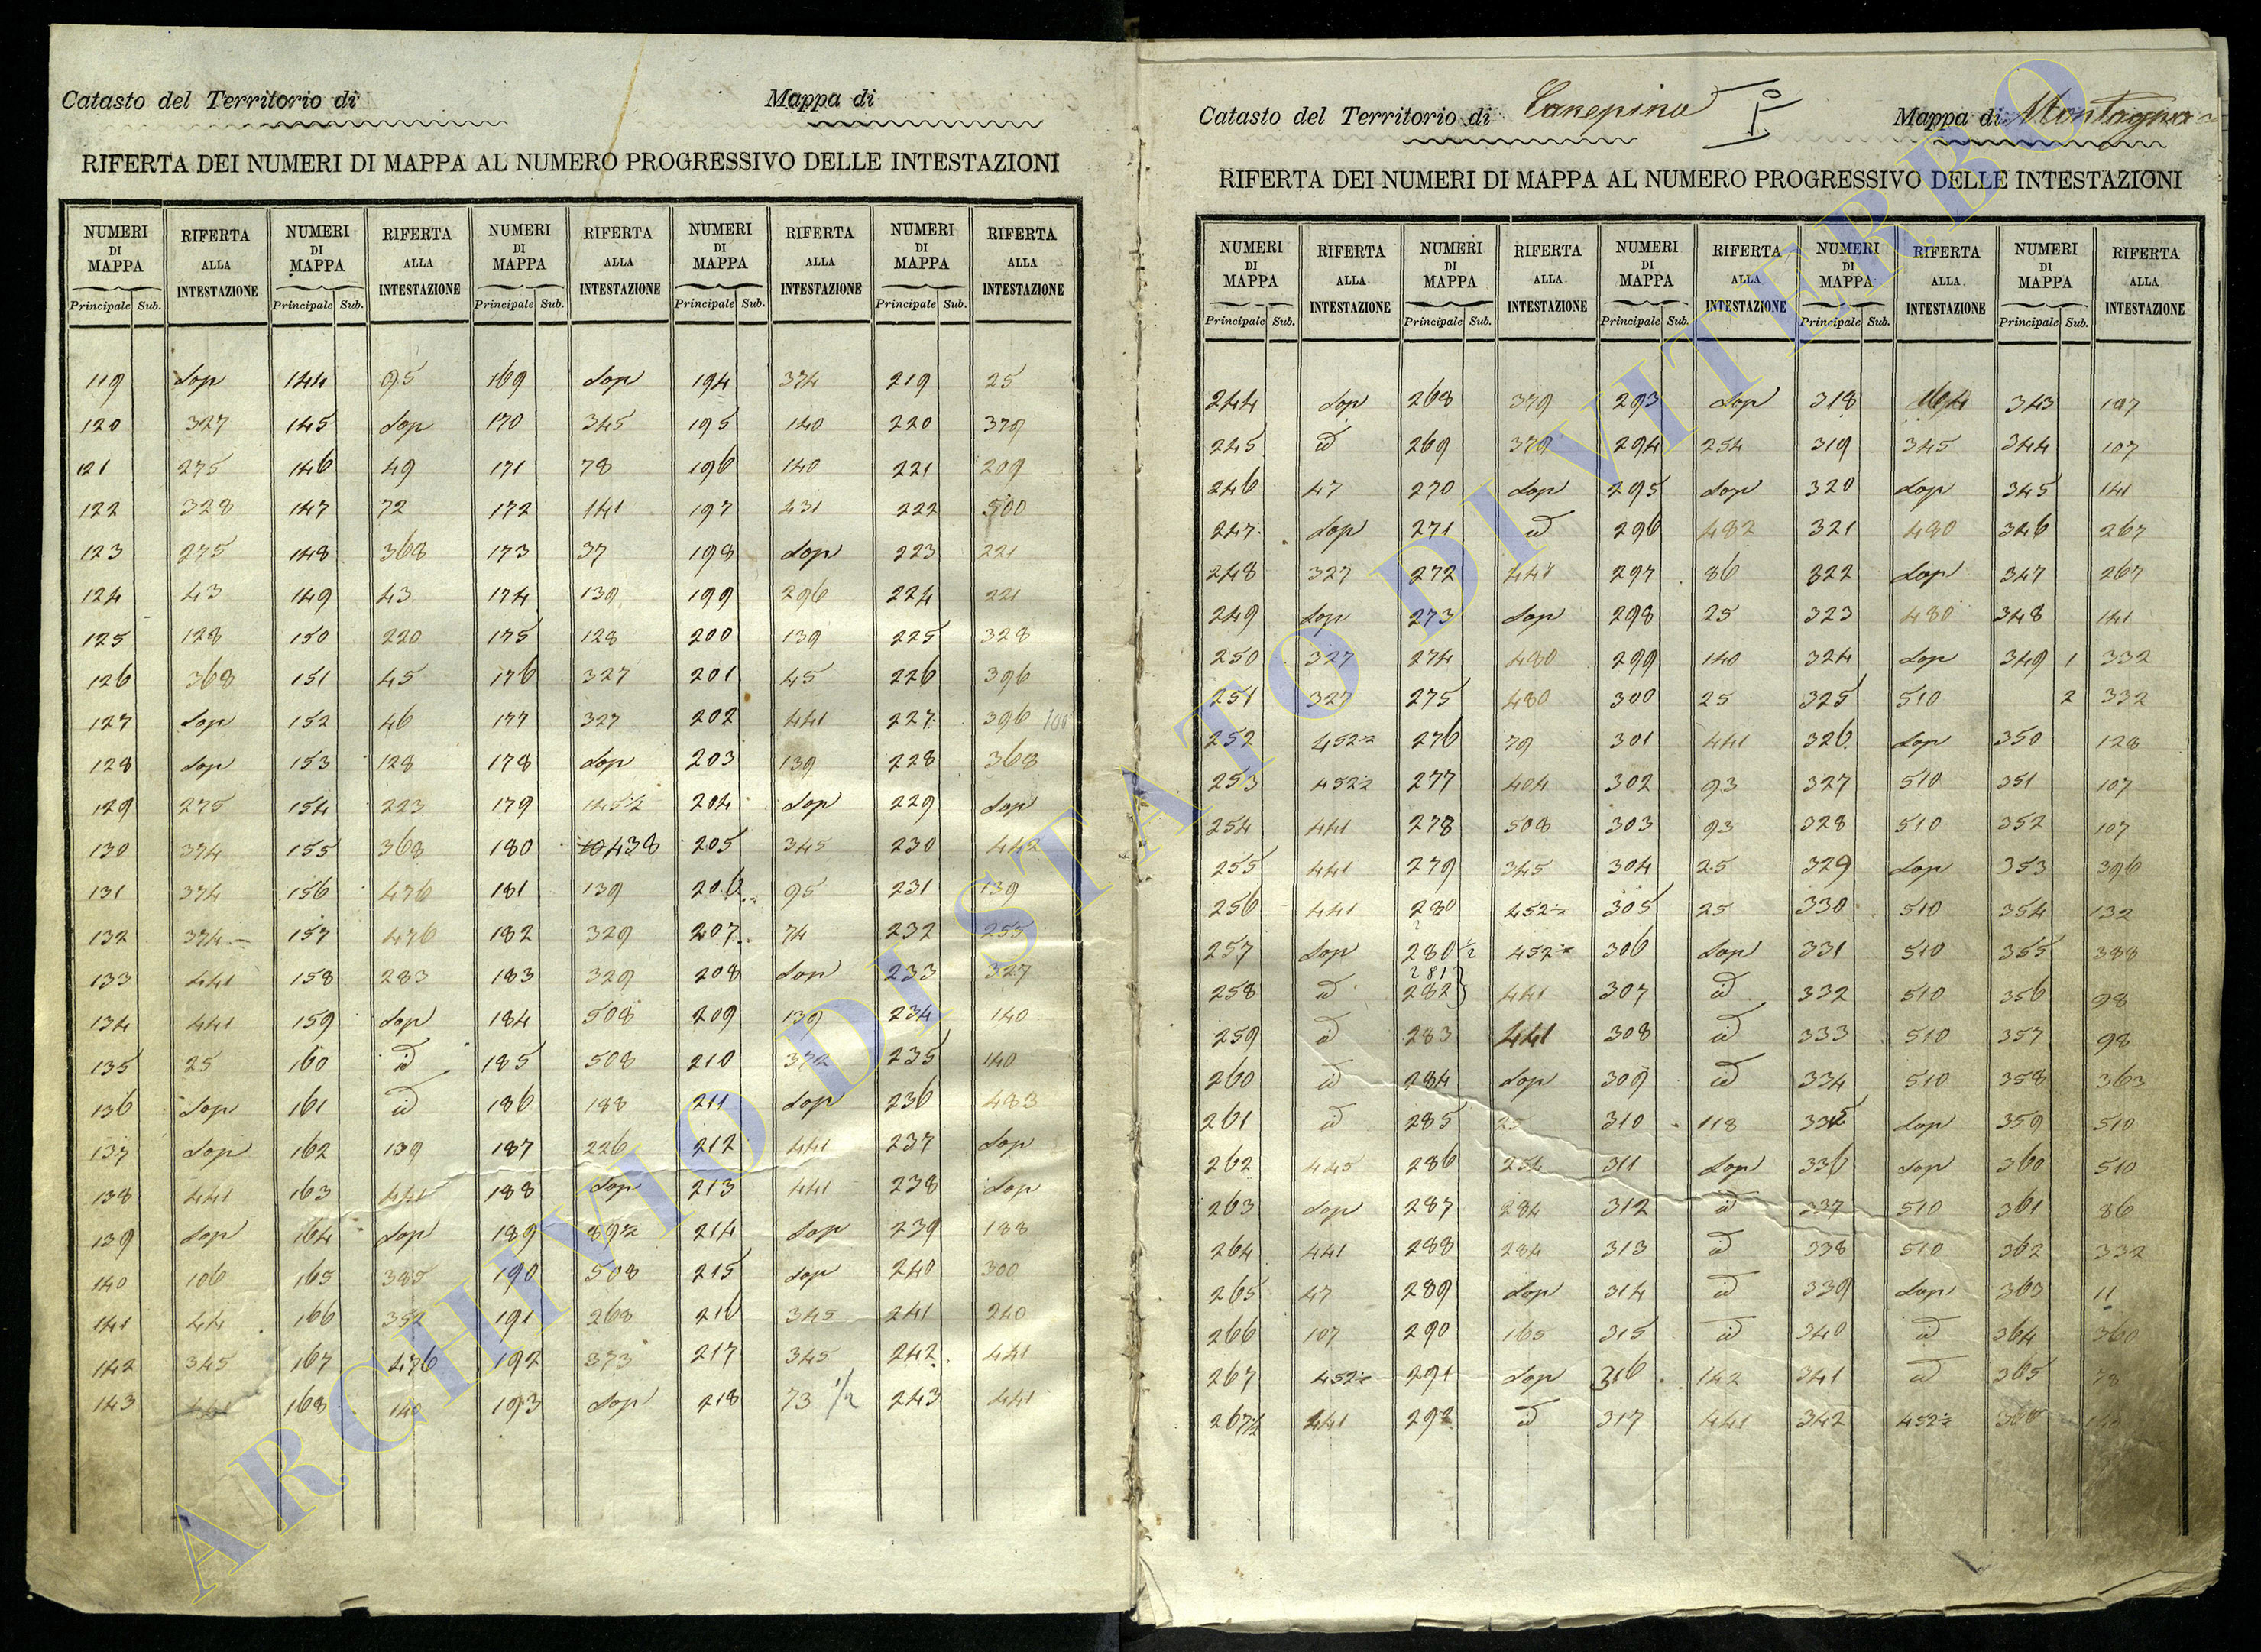 Catasto del Territorio di Mappa di
RIFERTA DEI NUMERI DI MAPPA AL NUMERO PROGRESSIVO DELLE INTESTAZIONI
NUMERI DI MAPPA RIFERTA ALLA INTESTAZIONE NUMERI DI MAPPA RIFERTA ALLA INTESTAZIONE NUMERI DI MAPPA RIFERTA ALLA INTESTAZIONE NUMERI DI MAPPA RIFERTA ALLA INTESTAZIONE NUMERI DI MAPPA RIFERTA ALLA INTESTAZIONE
Principale Sub. Principale Sub. Principale Sub. Principale Sub. Principale Sub.
119 Sop 144 95 169 Sop 194 374 219 25
120 327 145 Sop 170 345 195 140 220 379
121 275 146 49 171 78 196 140 221 209
122 328 147 72 172 141 197 431 222 500
123 275 148 368 173 37 198 Sop 223 221
124 43 149 43 174 139 199 296 224 221
125 128 150 220 175 128 200 139 225 328
126 368 151 45 176 327 201 45 226 396
127 Sop 152 46 177 327 202 441 227 396
128 Sop 153 128 178 Sop 203 139 228 368
129 275 154 223 179 204 Sop 229 Sop
130 374 155 368 180 438 205 345 230 442
131 374 156 476 181 139 206 95 231 139
132 374 157 476 182 329 207 74 232 255
133 441 158 283 183 329 208 Sop 233 327
134 441 159 Sop 184 508 209 139 234 140
135 25 160 id 185 508 210 372 235 140
136 Sop 161 id 186 188 211 Sop 236 483
137 Sop 162 139 187 226 212 441 237 Sop
138 441 163 441 188 Sop 213 441 238 Sop
139 Sop 164 Sop 189 89½ 214 Sop 239 188
140 106 165 385 190 508 215 Sop 240 300
141 44 166 352 191 268 216 345 241 240
142 345 167 476 192 373 217 345 242 441
143 441 168 140 193 Sop 218 73 1/2 243 441
Catasto del Territorio di Canepina I° Mappa di Montagna
RIFERTA DEI NUMERI DI MAPPA AL NUMERO PROGRESSIVO DELLE INTESTAZIONI
NUMERI DI MAPPA RIFERTA ALLA INTESTAZIONE NUMERI DI MAPPA RIFERTA ALLA INTESTAZIONE NUMERI DI MAPPA RIFERTA ALLA INTESTAZIONE NUMERI DI MAPPA RIFERTA ALLA INTESTAZIONE NUMERI DI MAPPA RIFERTA ALLA INTESTAZIONE
Principale Sub. Principale Sub. Principale Sub. Principale Sub. Principale Sub.
244 Sop 268 379 293 Sop 318 343 107
245 id 269 379 294 254 319 345 344 107
246 47 270 Sop 295 Sop 320 Sop 345 141
247 Sop 271 id 296 482 321 480 346 267
248 327 272 441 297 86 322 Sop 347 267
249 Sop 273 Sop 298 25 323 480 348 141
250 327 274 480 299 140 324 Sop 349 1 332
251 327 275 480 300 25 325 510 2 332
252 452½ 276 79 301 441 326 Sop 350 128
253 452½ 277 404 302 93 327 510 351 107
254 441 278 508 303 93 328 510 352 107
255 441 279 345 304 25 329 Sop 353 396
256 441 280 452½ 305 25 330 510 354 132
257 Sop 280 ½ 452½ 306 Sop 331 510 355 388
281
258 id 282 441 307 id 332 510 356 98
259 id 283 441 308 id 333 510 357 98
260 id 284 Sop 309 id 334 510 358 363
261 id 285 25 310 118 335 Sop 359 510
262 445 286 254 311 Sop 336 Sop 360 510
263 Sop 287 284 312 id 337 510 361 86
264 441 288 284 313 id 338 510 362 332
265 47 289 Sop 314 id 339 Sop 363 11
266 107 290 165 315 id 340 id 364 360
267 452½ 291 Sop 316 142 341 id 365 78
267½ 441 292 id 317 441 342 452½ 366
ARCHIVIO DI STATO DI VITERBO